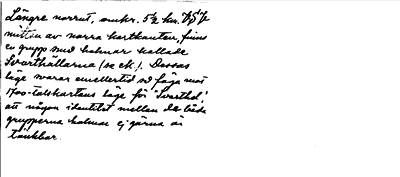 Längre norrut, omkr. 5 ½ km. VSV
mitten av norra kartkanten, finns
en grupp med holmar kallade
Svarthällarna (se ek.). Dessas
läge svarar emellertid så föga mot
1700-talskartans läge för "Svarthol",
att någon identitet mellan de båda
grupperna holmar ej gärna är
tänkbar.